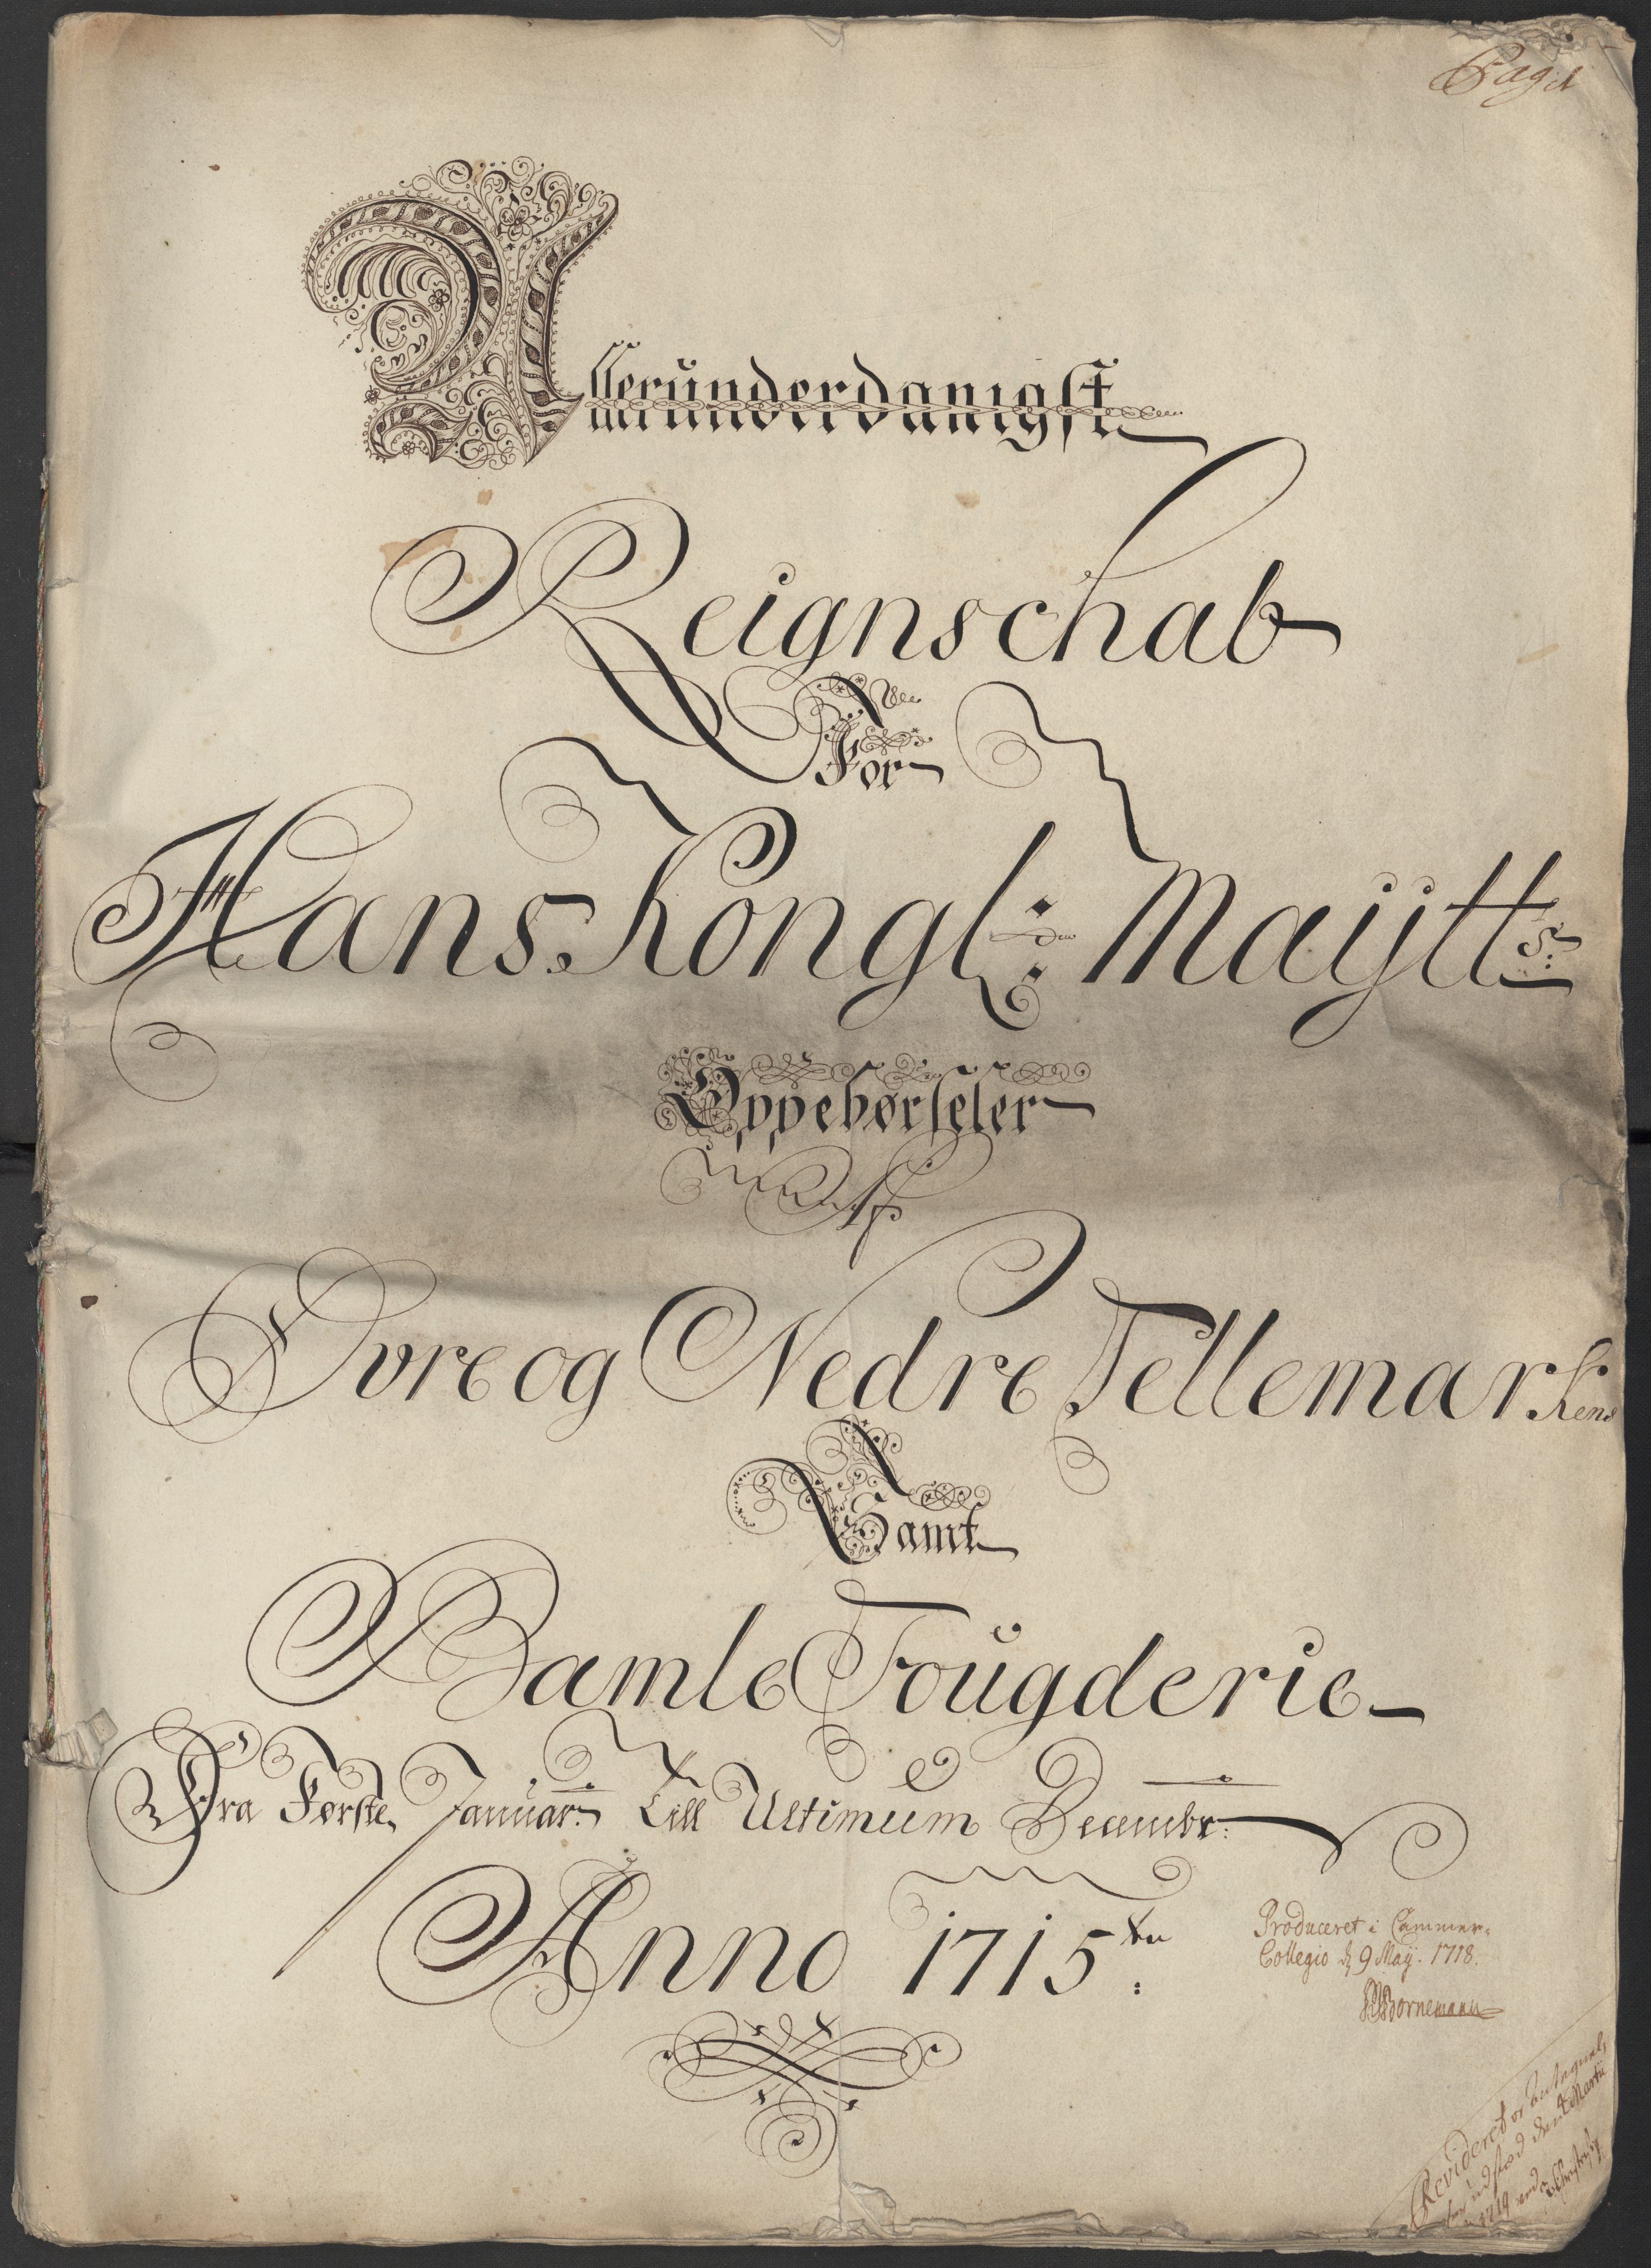 Pag 1
Alleründerdanigst
Reignschab
For
Hans Kongl: Maÿtts:
Oppebørseler
Af
Øvre og Nedre Tellemarkens
Samt
Bamle Foügderie
Fra Første Januar: till Ultimum Decembr:
Anno 1715ten:
Produceret i Cammer-
Collegio d 9 Maÿ. 1718.
Bornemann
Revideret og
1719